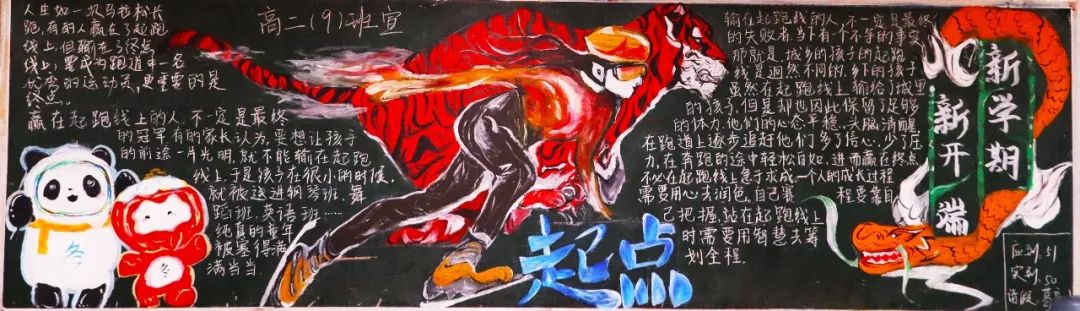 人生如一次马拉松长
跑,有的人赢在了起跑
线上,但输在了终点
线上,要成为跑道中一名
优秀的运动员,更重要的是
终点。
赢在起跑线上的人,不一定是最终
的冠军有的家长认为,要想让孩子
的前途一片光明,就不能输在起跑
线上,于是孩子在很小的时候,
就被送进钢琴班,舞
蹈班,英语班……
纯真的童年
被塞得满
满当当.
高二(9)班宣
起点
输在起跑线的人,不一定是最终
的失败者当下有个不争的事实
那就是,城乡的孩子的起跑
线是迥然不同的,乡下的孩子
虽然在起跑线上输给了城里
的孩子,但是却也因此保留了足够
的体力,他们的心态平稳,头脑清醒
在跑道上逐步追好他们多了信心,少了压
力,在奔跑的途中轻松自如,进而赢在终点
不必在起跑线上急于求成一个人的成长过程
需要用心去润色,自己赛 程要靠自
己把握,站在起跑线上
时需要用智慧去筹
划全程.
新学期
新开端
应到:51
实到:50
请假:
冬
冬